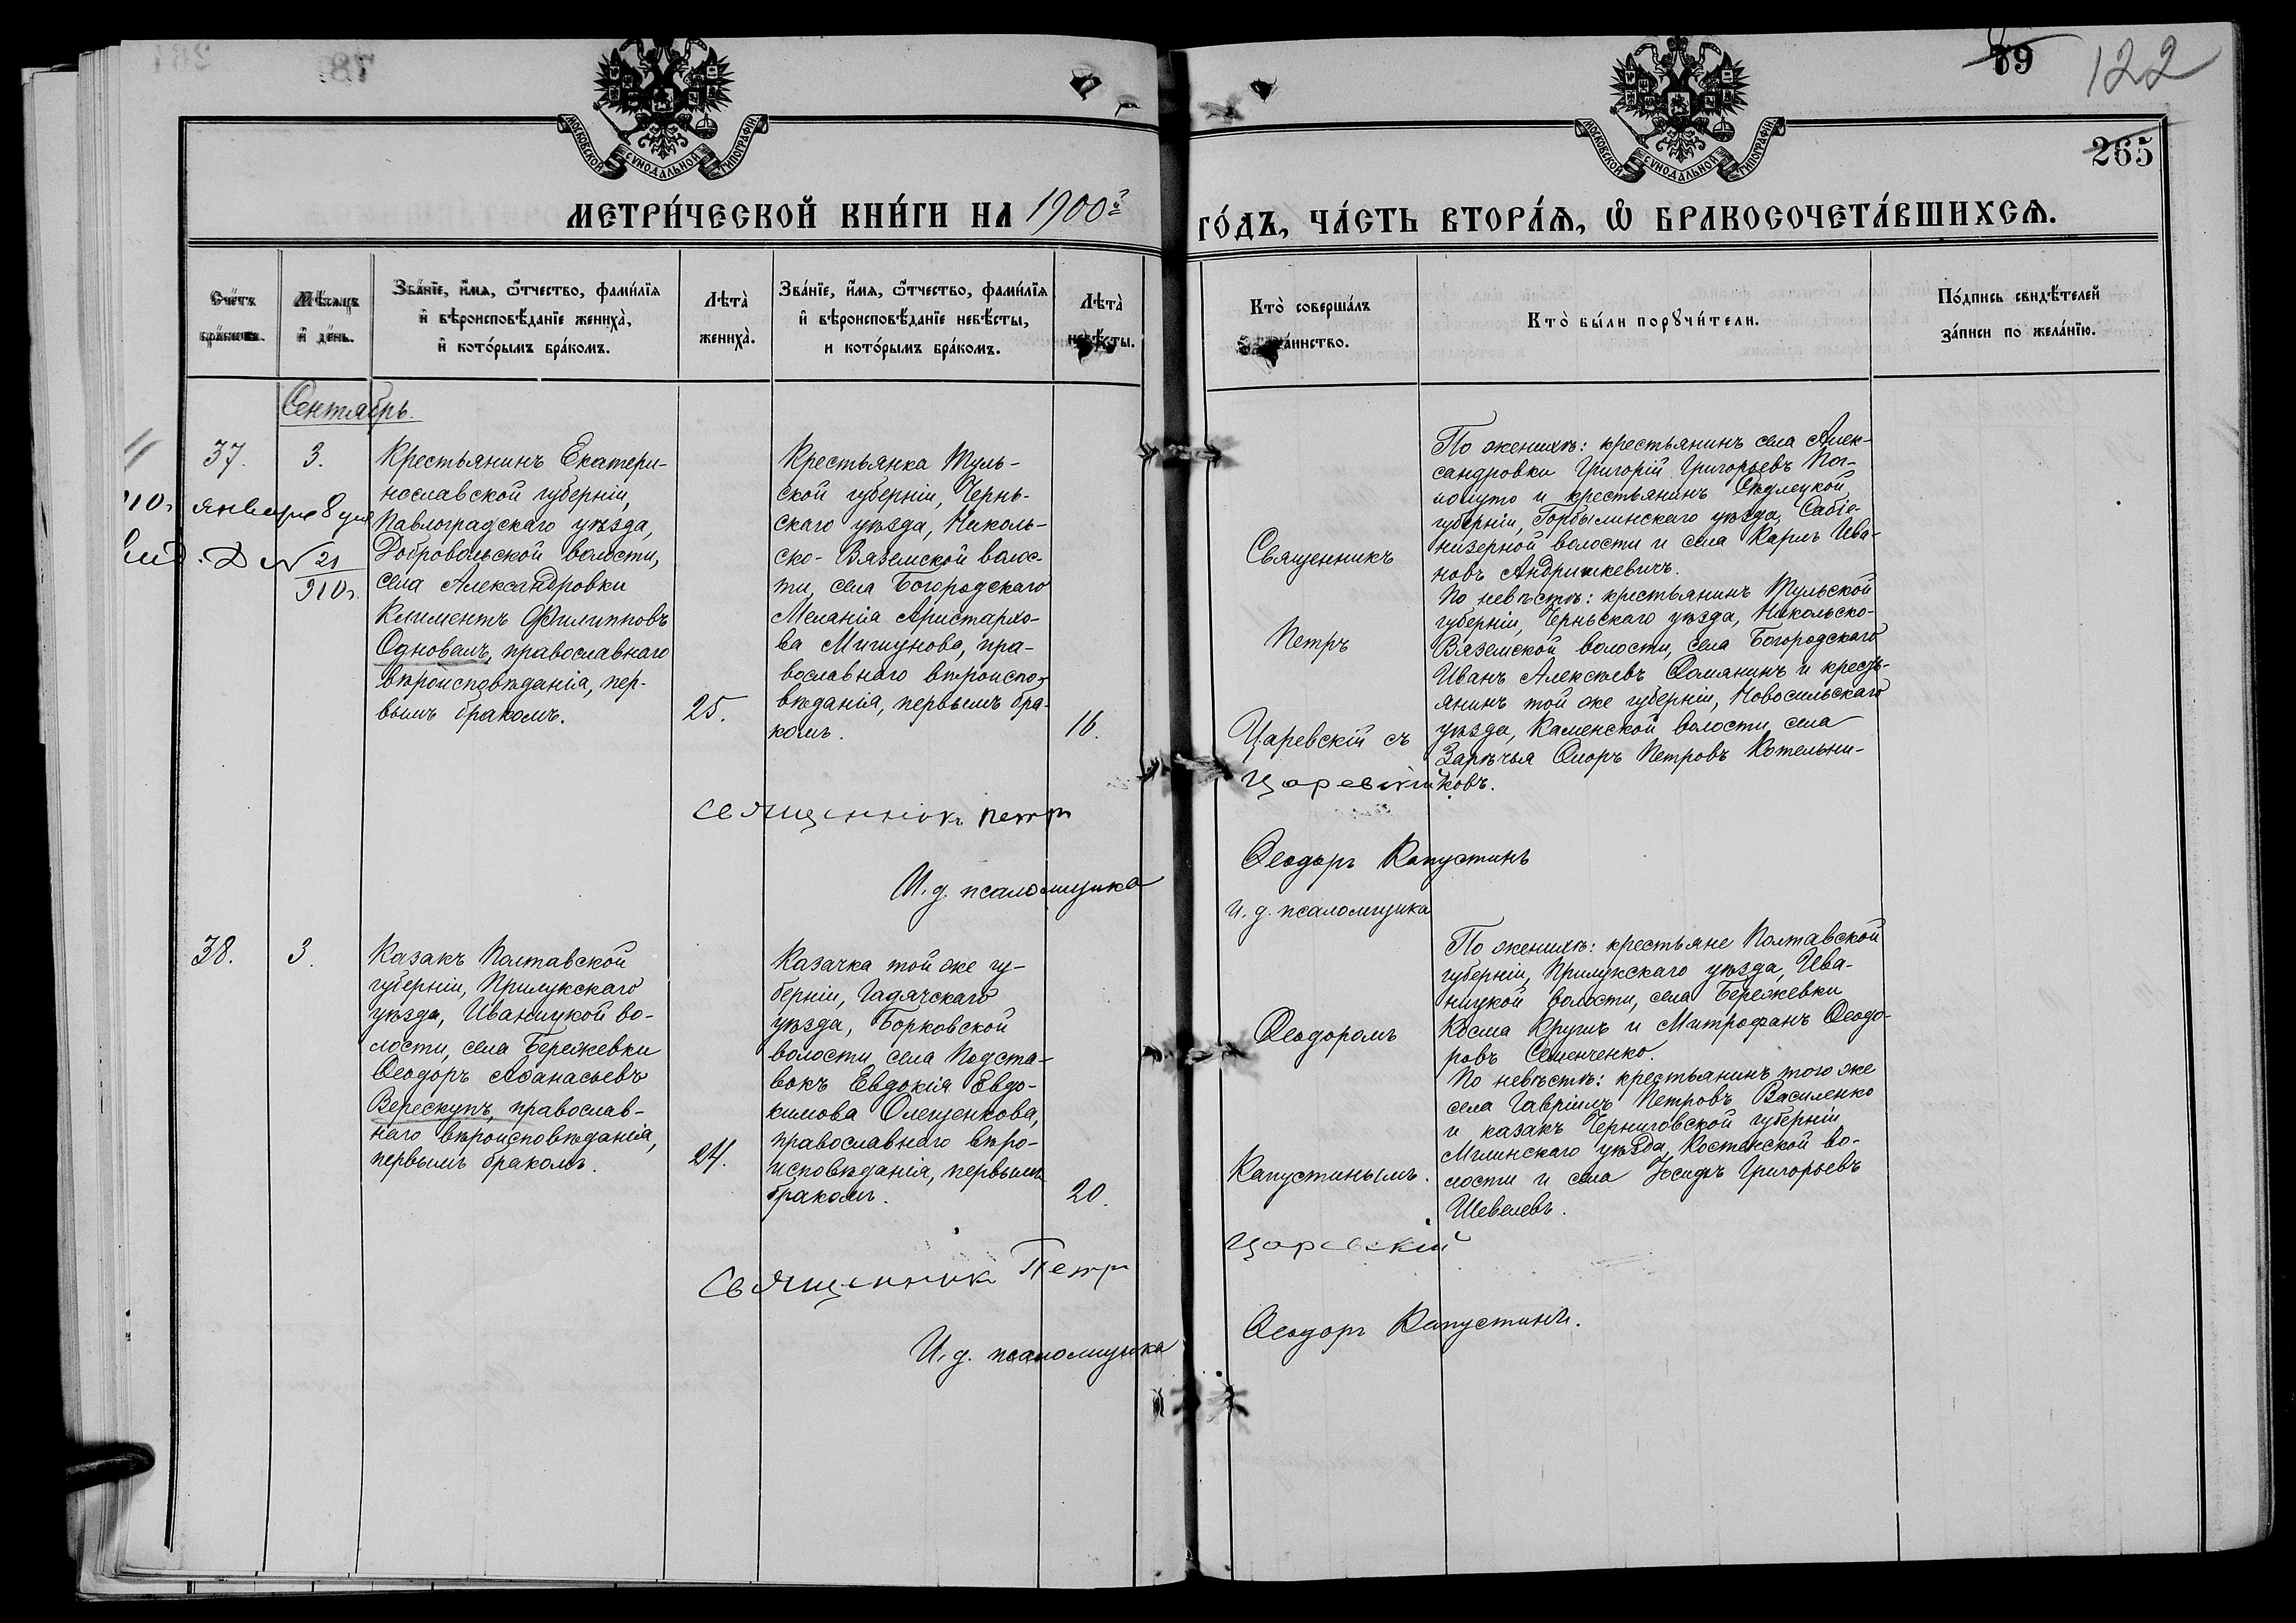 79
122
265
МОСКОВСКОЙ СУНОДАЛЬНОЙ ТИПОГРАФІИ
МОСКОВСКОЙ СУНОДАЛЬНОЙ ТИПОГРАФІИ
МЕТРИ́ЧЕСКОЙ КНИ́ГИ НА 1900й
ГО́ДЪ, ЧА́СТЬ ВТОРА́Я, Ѡ БРАКОСОЧЕТА́ВШИХСЯ.
Счётъ бра́ковъ.
Мѣ́сяцъ и де́нь.
Зва́нїе, и́мя, ѻ҆́тчество, фами́лїя
и вѣроисповѣ́данїе жениха̀,
и кото́рымъ бра́комъ.
Лѣта̀
жениха̀.
Зва́нїе, и́мя, ѻ҆́тчество, фами́лїя
и вѣроисповѣ́данїе невѣ́сты,
и кото́рымъ бра́комъ.
Лѣта̀
невѣ́сты.
Кто̀ соверша́лъ
та́инство.
Кто̀ бы́ли пору́чи́тели.
По́дпись свидѣ́телей
за́писи по жела́нїю.
Сентябрь.
37.
3.
10. января 8 дня
вид. Д № 21
910г.
Крестьянинъ Екатери-
нославской губерніи,
Павлоградскаго уѣзда,
Добровольской волости,
села Александровки
Климентъ Филипповъ
Одноваль, православнаго
вѣроисповѣданія, пер-
вымъ бракомъ.
25.
Крестьянка Туль-
ской губерніи, Чернь-
скаго уѣзда, Николь-
ско-Вяземской волос-
ти, села Богородскаго
Меланія Аристархо-
ва Мишунова, пра-
вославнаго вѣроиспо-
вѣданія, первымъ бра-
комъ.
16.
Священникъ
Петръ
Царевскій съ
По женихѣ: крестьянинъ села Алек-
сандровки Григорій Григорьевъ
и крестьянинъ Сѣдлецкой
губерніи, уѣзда,
волости и села Карлъ Ива-
новъ Андришкевичъ.
По невѣстѣ: крестьянинъ Тульской
губерніи, Черньскаго уѣзда, Никольско-
Вяземской волости, села Богородскаго
Иванъ Алексѣевъ Ѳомянинъ и кресть-
янинъ той же губерніи, Новосильскаго
уѣзда, Каменской волости, села
Зарѣчья Ѳлоръ Петровъ Котельни-
ковъ.
Священникъ Петръ Царевскій
И. д. псаломщика Ѳеодоръ Капустинъ
и. д. псаломщика
38.
3.
Казакъ Полтавской
губерніи, Прилукскаго
уѣзда, Иваницкой во-
лости, села Бережевки
Ѳеодоръ Аѳанасьевъ
Верескунъ, православ-
наго вѣроисповѣданія,
первымъ бракомъ.
24.
Казачка той же гу-
берніи, Гадячскаго
уѣзда, Борковской
волости, села Подста-
вокъ Евдокія Евдо-
кимова Олещенкова,
православнаго вѣро-
исповѣданія, первымъ
бракомъ.
20.
Ѳеодоромъ
Капустинымъ.
По женихѣ: крестьяне Полтавской
губерніи, Прилукскаго уѣзда, Ива-
ницкой волости, села Бережевки
Косма Крушъ и Митрофанъ Ѳеодо-
ровъ Семенченко.
По невѣстѣ: крестьянинъ того же
села Гавріилъ Петровъ Василенко
и казакъ Черниговской губерніи
Мглинскаго уѣзда, Костенской во-
лости и села Іосифъ Григорьевъ
Шевелевъ.
Священникъ Петръ Царевскій
И. д. псаломщика Ѳеодоръ Капустинъ.